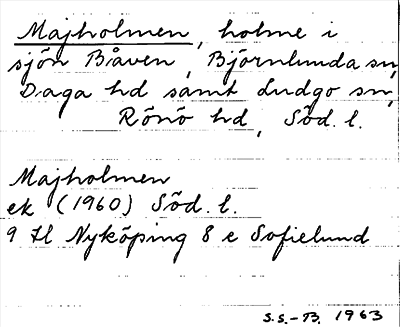 Majholmen, holme i
sjön Båven, Björnlunda sn,
Daga hd samt Ludgo sn,
Rönö hd, Söd. l.
Majholmen
ek (1960) Söd. l.
9 H Nyköping 8 e Sofielund
S.S.-B. 1963